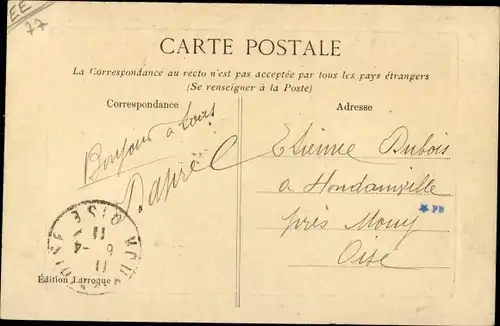 EE
77
CARTE POSTALE
La Correspondance au recto n'est pas acceptée par tous les pays étrangers
(Se renseigner à la Poste)
Correspondance
Adresse
Bonjour à tous
Etienne Dubois
a Hondainville
près Mouy
Oise
PB
OISE
6-4
11
Edition Larroque